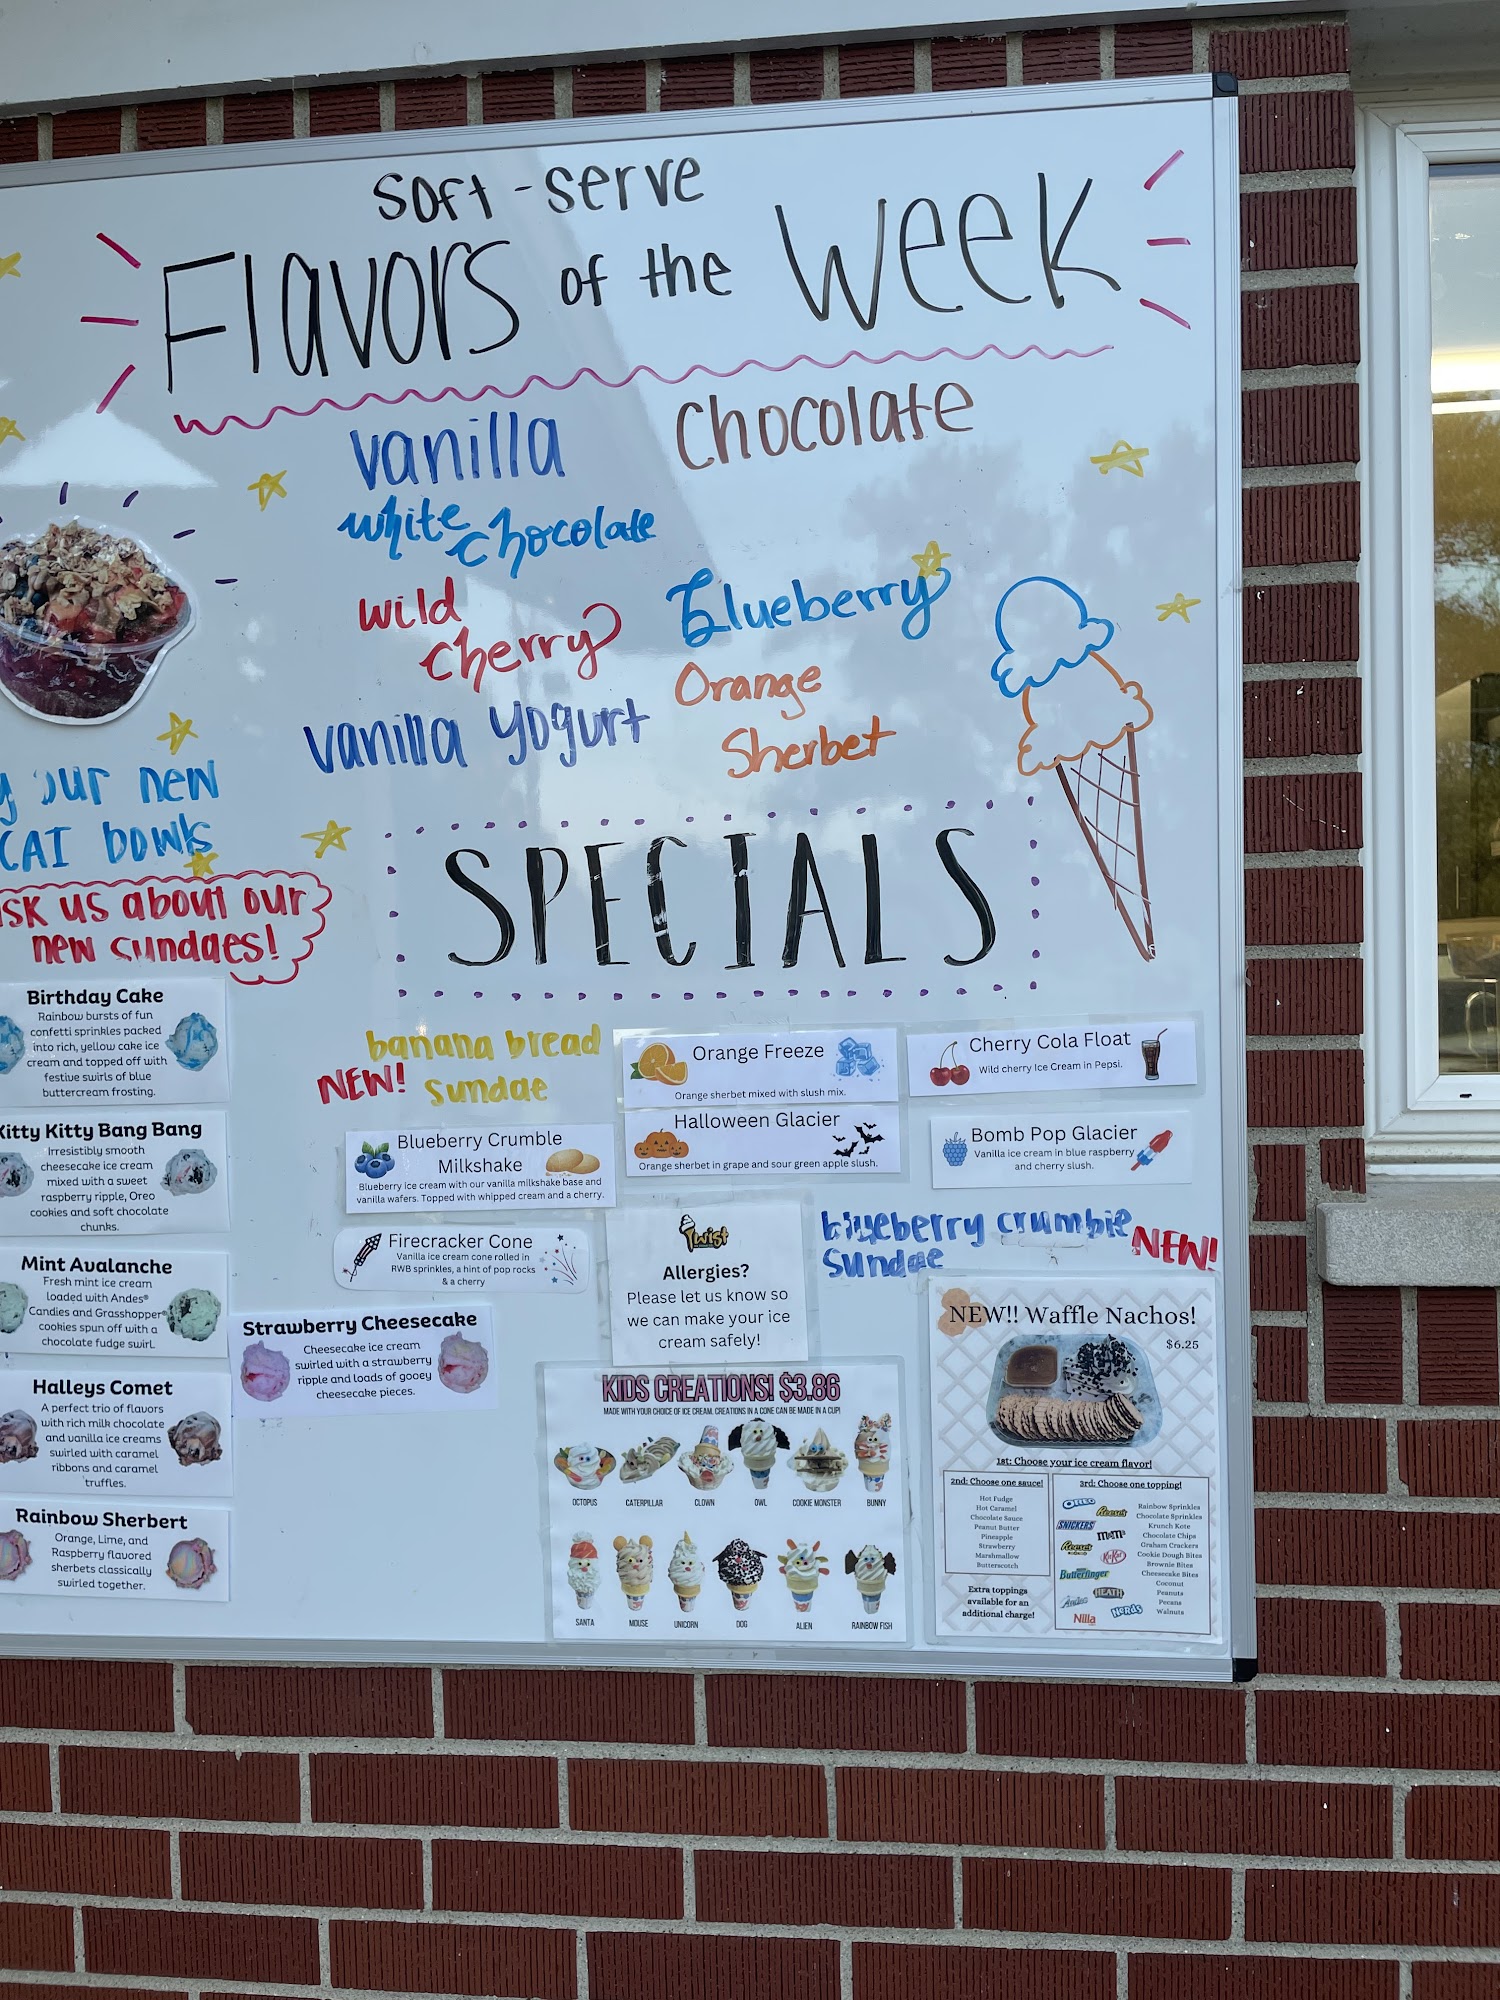 Soft-serve
Flavors of the Week
vanilla
chocolate
white
chocolate
wild
cherry
Blueberry
Orange
Sherbet
vanilla yogurt
our new
bowls
us about our
new sundaes!
SPECIALS
Birthday Cake
Rainbow bursts of fun
confetti sprinkles packed
into rich, yellow cake ice
cream and topped off with
festive swirls of blue
buttercream frosting.
Kitty Kitty Bang Bang
Irresistibly smooth
cheesecake ice cream
mixed with a sweet
raspberry ripple, Oreo
cookies and soft chocolate
chunks.
Mint Avalanche
Fresh mint ice cream
loaded with Andes®
Candies and Grasshopper®
cookies spun off with a
chocolate fudge swirl.
Halleys Comet
A perfect trio of flavors
with rich milk chocolate
and vanilla ice creams
swirled with caramel
ribbons and caramel
truffles.
Rainbow Sherbert
Orange, Lime, and
Raspberry flavored
sherbets classically
swirled together.
Strawberry Cheesecake
Cheesecake ice cream
swirled with a strawberry
ripple and loads of gooey
cheesecake pieces.
banana bread
NEW! sundae
Orange Freeze
Orange sherbet mixed with slush mix.
Cherry Cola Float
Wild cherry Ice Cream in Pepsi.
Halloween Glacier
Orange sherbet in grape and sour green apple slush.
Bomb Pop Glacier
Vanilla ice cream in blue raspberry
and cherry slush.
Blueberry Crumble
Milkshake
Blueberry ice cream with our vanilla milkshake base and
vanilla wafers. Topped with whipped cream and a cherry.
Firecracker Cone
Vanilla ice cream cone rolled in
RWB sprinkles, a hint of pop rocks
& a cherry
Twist
Allergies?
Please let us know so
we can make your ice
cream safely!
blueberry crumble
sundae
NEW!
KIDS CREATIONS! $3.86
MADE WITH YOUR CHOICE OF ICE CREAM. CREATIONS IN A CONE CAN BE MADE IN A CUP!
OCTOPUS CATERPILLAR CLOWN OWL COOKIE MONSTER BUNNY
SANTA MOUSE UNICORN DOG ALIEN RAINBOW FISH
NEW!! Waffle Nachos!
$6.25
1st: Choose your ice cream flavor!
2nd: Choose one sauce!
Hot Fudge
Hot Caramel
Chocolate Sauce
Peanut Butter
Pineapple
Strawberry
Marshmallow
Butterscotch
Extra toppings
available for an
additional charge!
3rd: Choose one topping!
OREO
Reese's
SNICKERS
m&m's
Reese's
KitKat
Butterfinger
Andes
HEATH
Nilla
NERDS
Rainbow Sprinkles
Chocolate Sprinkles
Krunch Kote
Chocolate Chips
Graham Crackers
Cookie Dough Bites
Brownie Bites
Cheesecake Bites
Coconut
Peanuts
Pecans
Walnuts